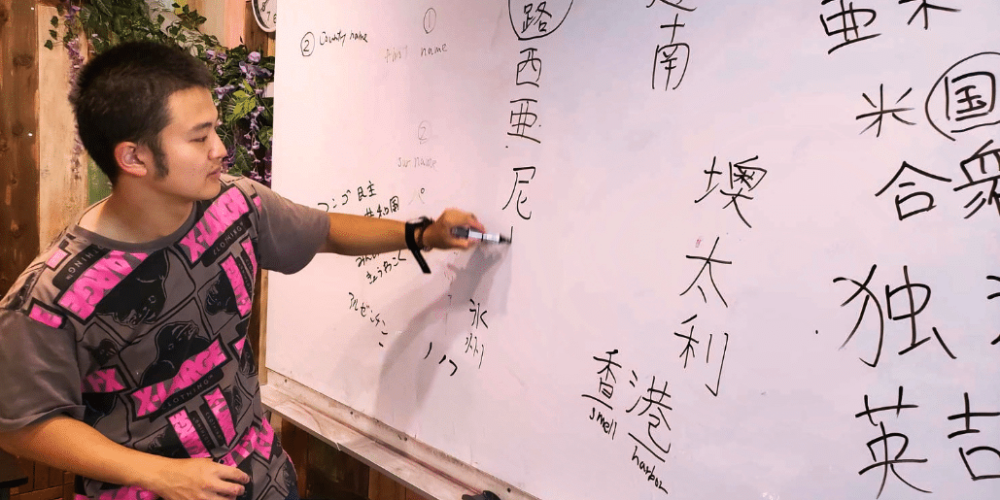 ② Country name
①
name
②
sur name
コンゴ 民主
共和国
きょうわこく
アルゼンチン
氷
州
路西亜尼
南
墺太利
香港
smell
harbor
亜
米
米
国
合衆
独
英吉
X-LARGE
CLOTHING